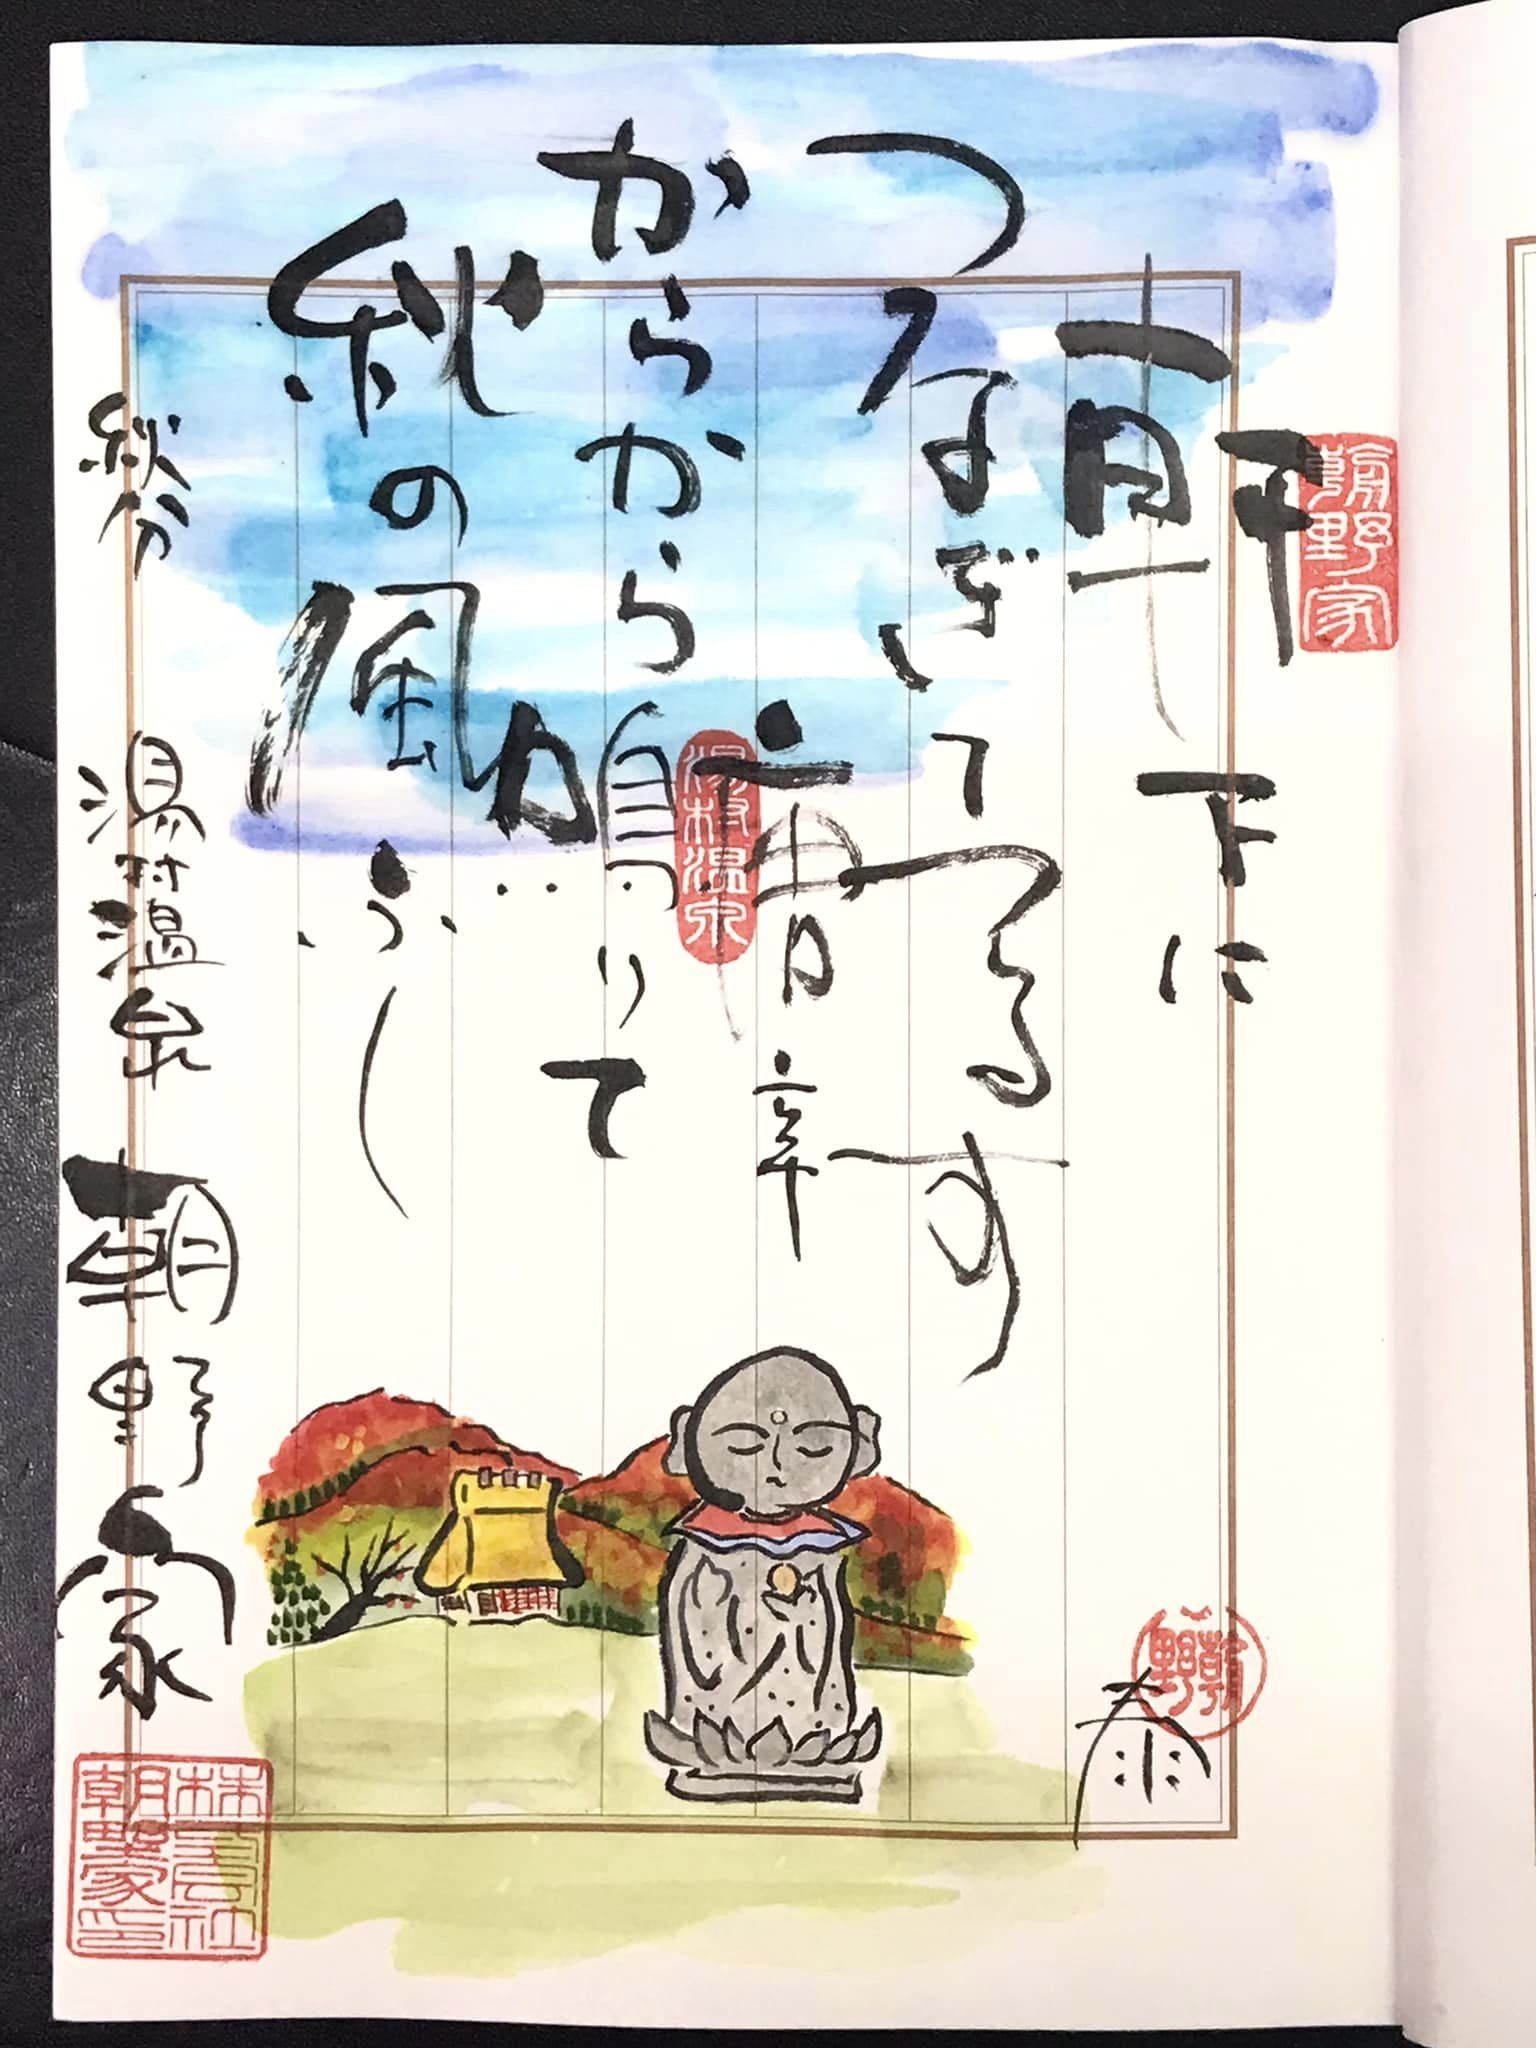 朝野家
軒下に
つなぎてつるす
唐辛
からから鳴りて
秋の風ふく
秋分
湯村温泉 朝野家
湯村温泉
泰
朝野
株式会社
朝野家印